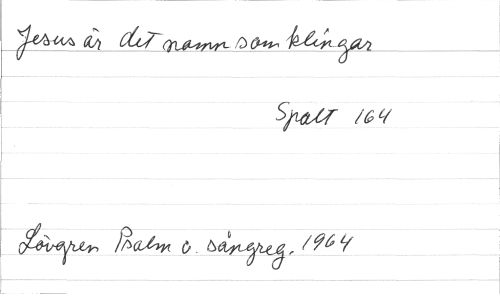 Jesus är det namn som klingar
Spalt 164
Lövgren Psalm o. sångreg. 1964